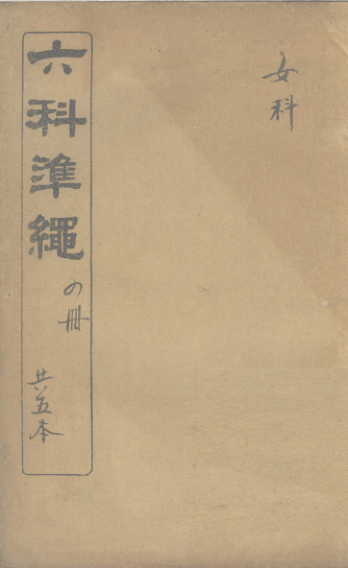 女科
六科準繩
の冊
共五本